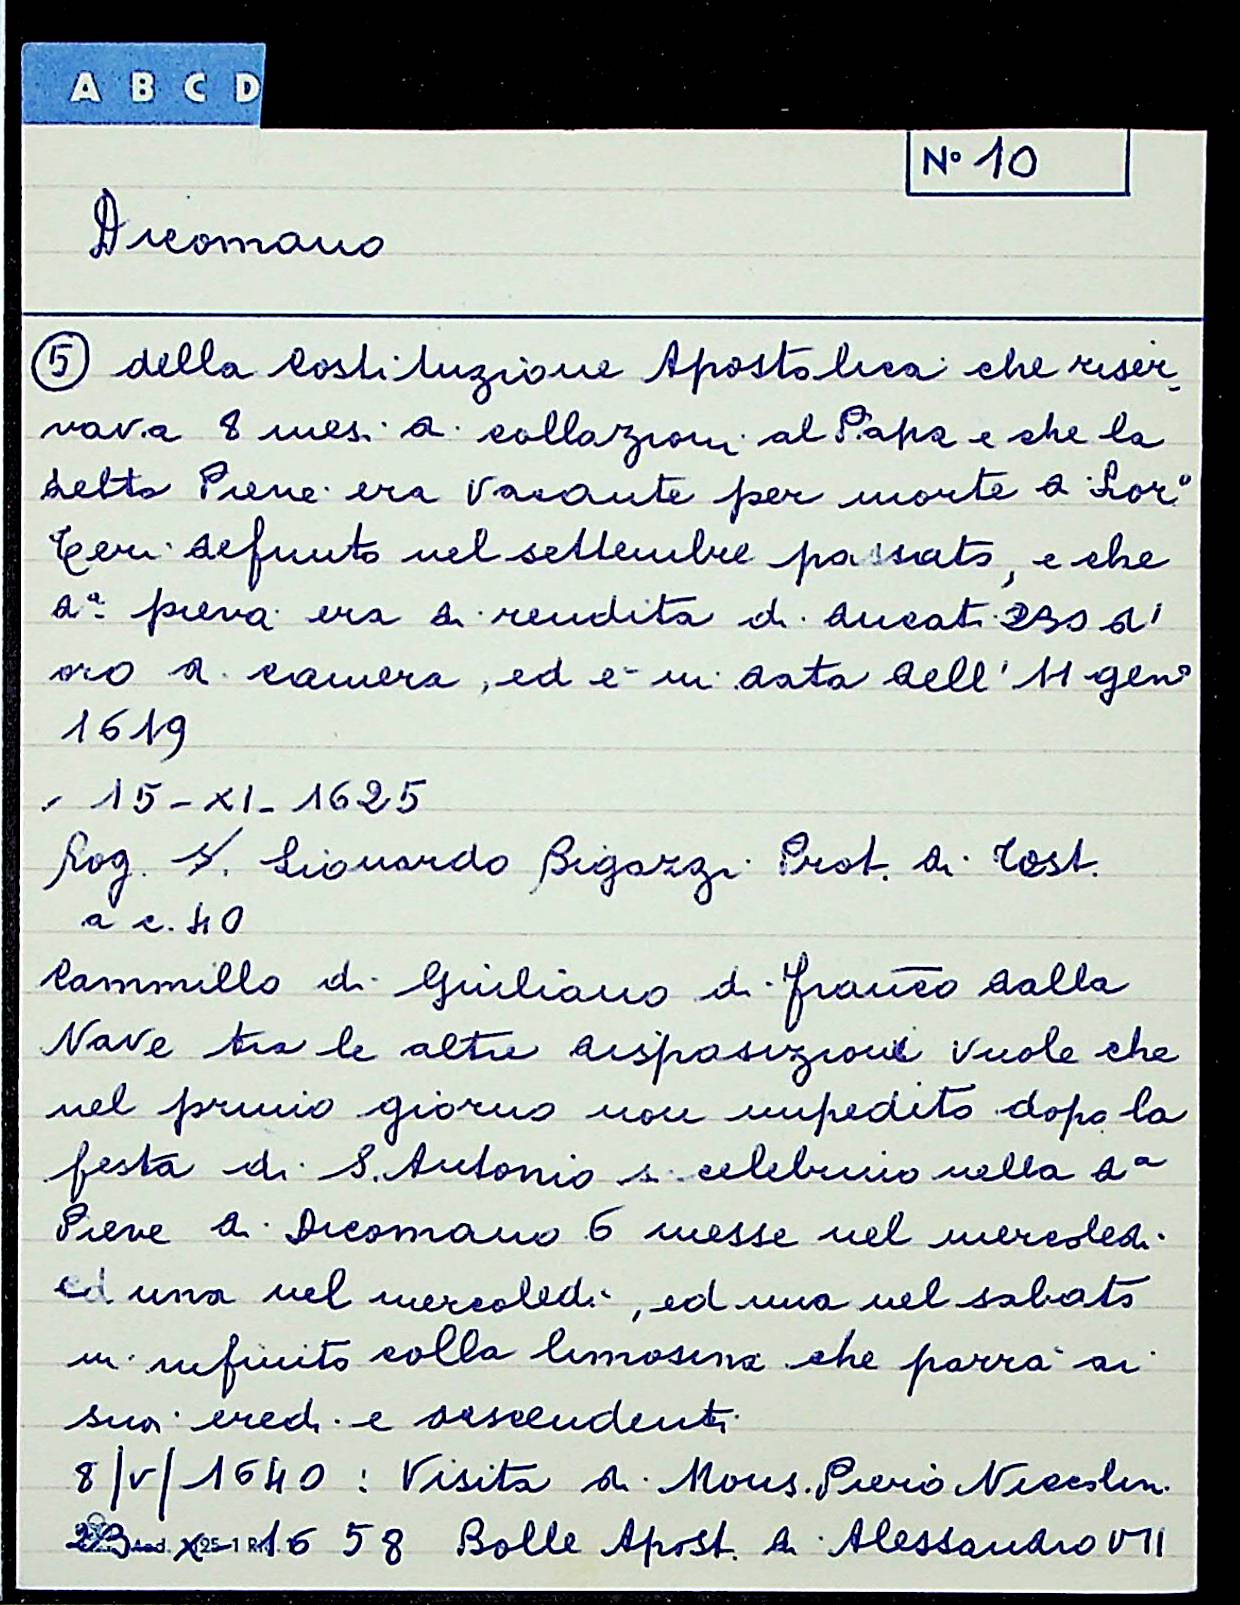 A B C D
N° 10
Dicomano
⑤ della Costituzione Apostolica che riser-
vava 8 mesi di collazioni al Papa e che la
detta Pieve era vacante per morte di Lor°
Ceri defunto nel settembre passato, e che
dª pieve era di rendita di ducati 230 d'
oro di camera, ed è in data dell' 11 gen°
1619
15-XI-1625
Rog. S. Lionardo Bigazzi Prot. di Test.
a c. 40
Cammillo di Giuliano di Franco dalla
Nave tra le altre disposizioni vuole che
nel primo giorno non impedito dopo la
festa di S. Antonio si celebrino nella dª
Pieve di Dicomano 6 messe nel mercoledi
ed una nel mercoledi, ed una nel sabato
in infinito colla limosina che parrà ai
suoi eredi e descendenti
8/V/1640: Visita di Mons. Piero Niccolini
23 X 1658 Bolle Apost. di Alessandro VII